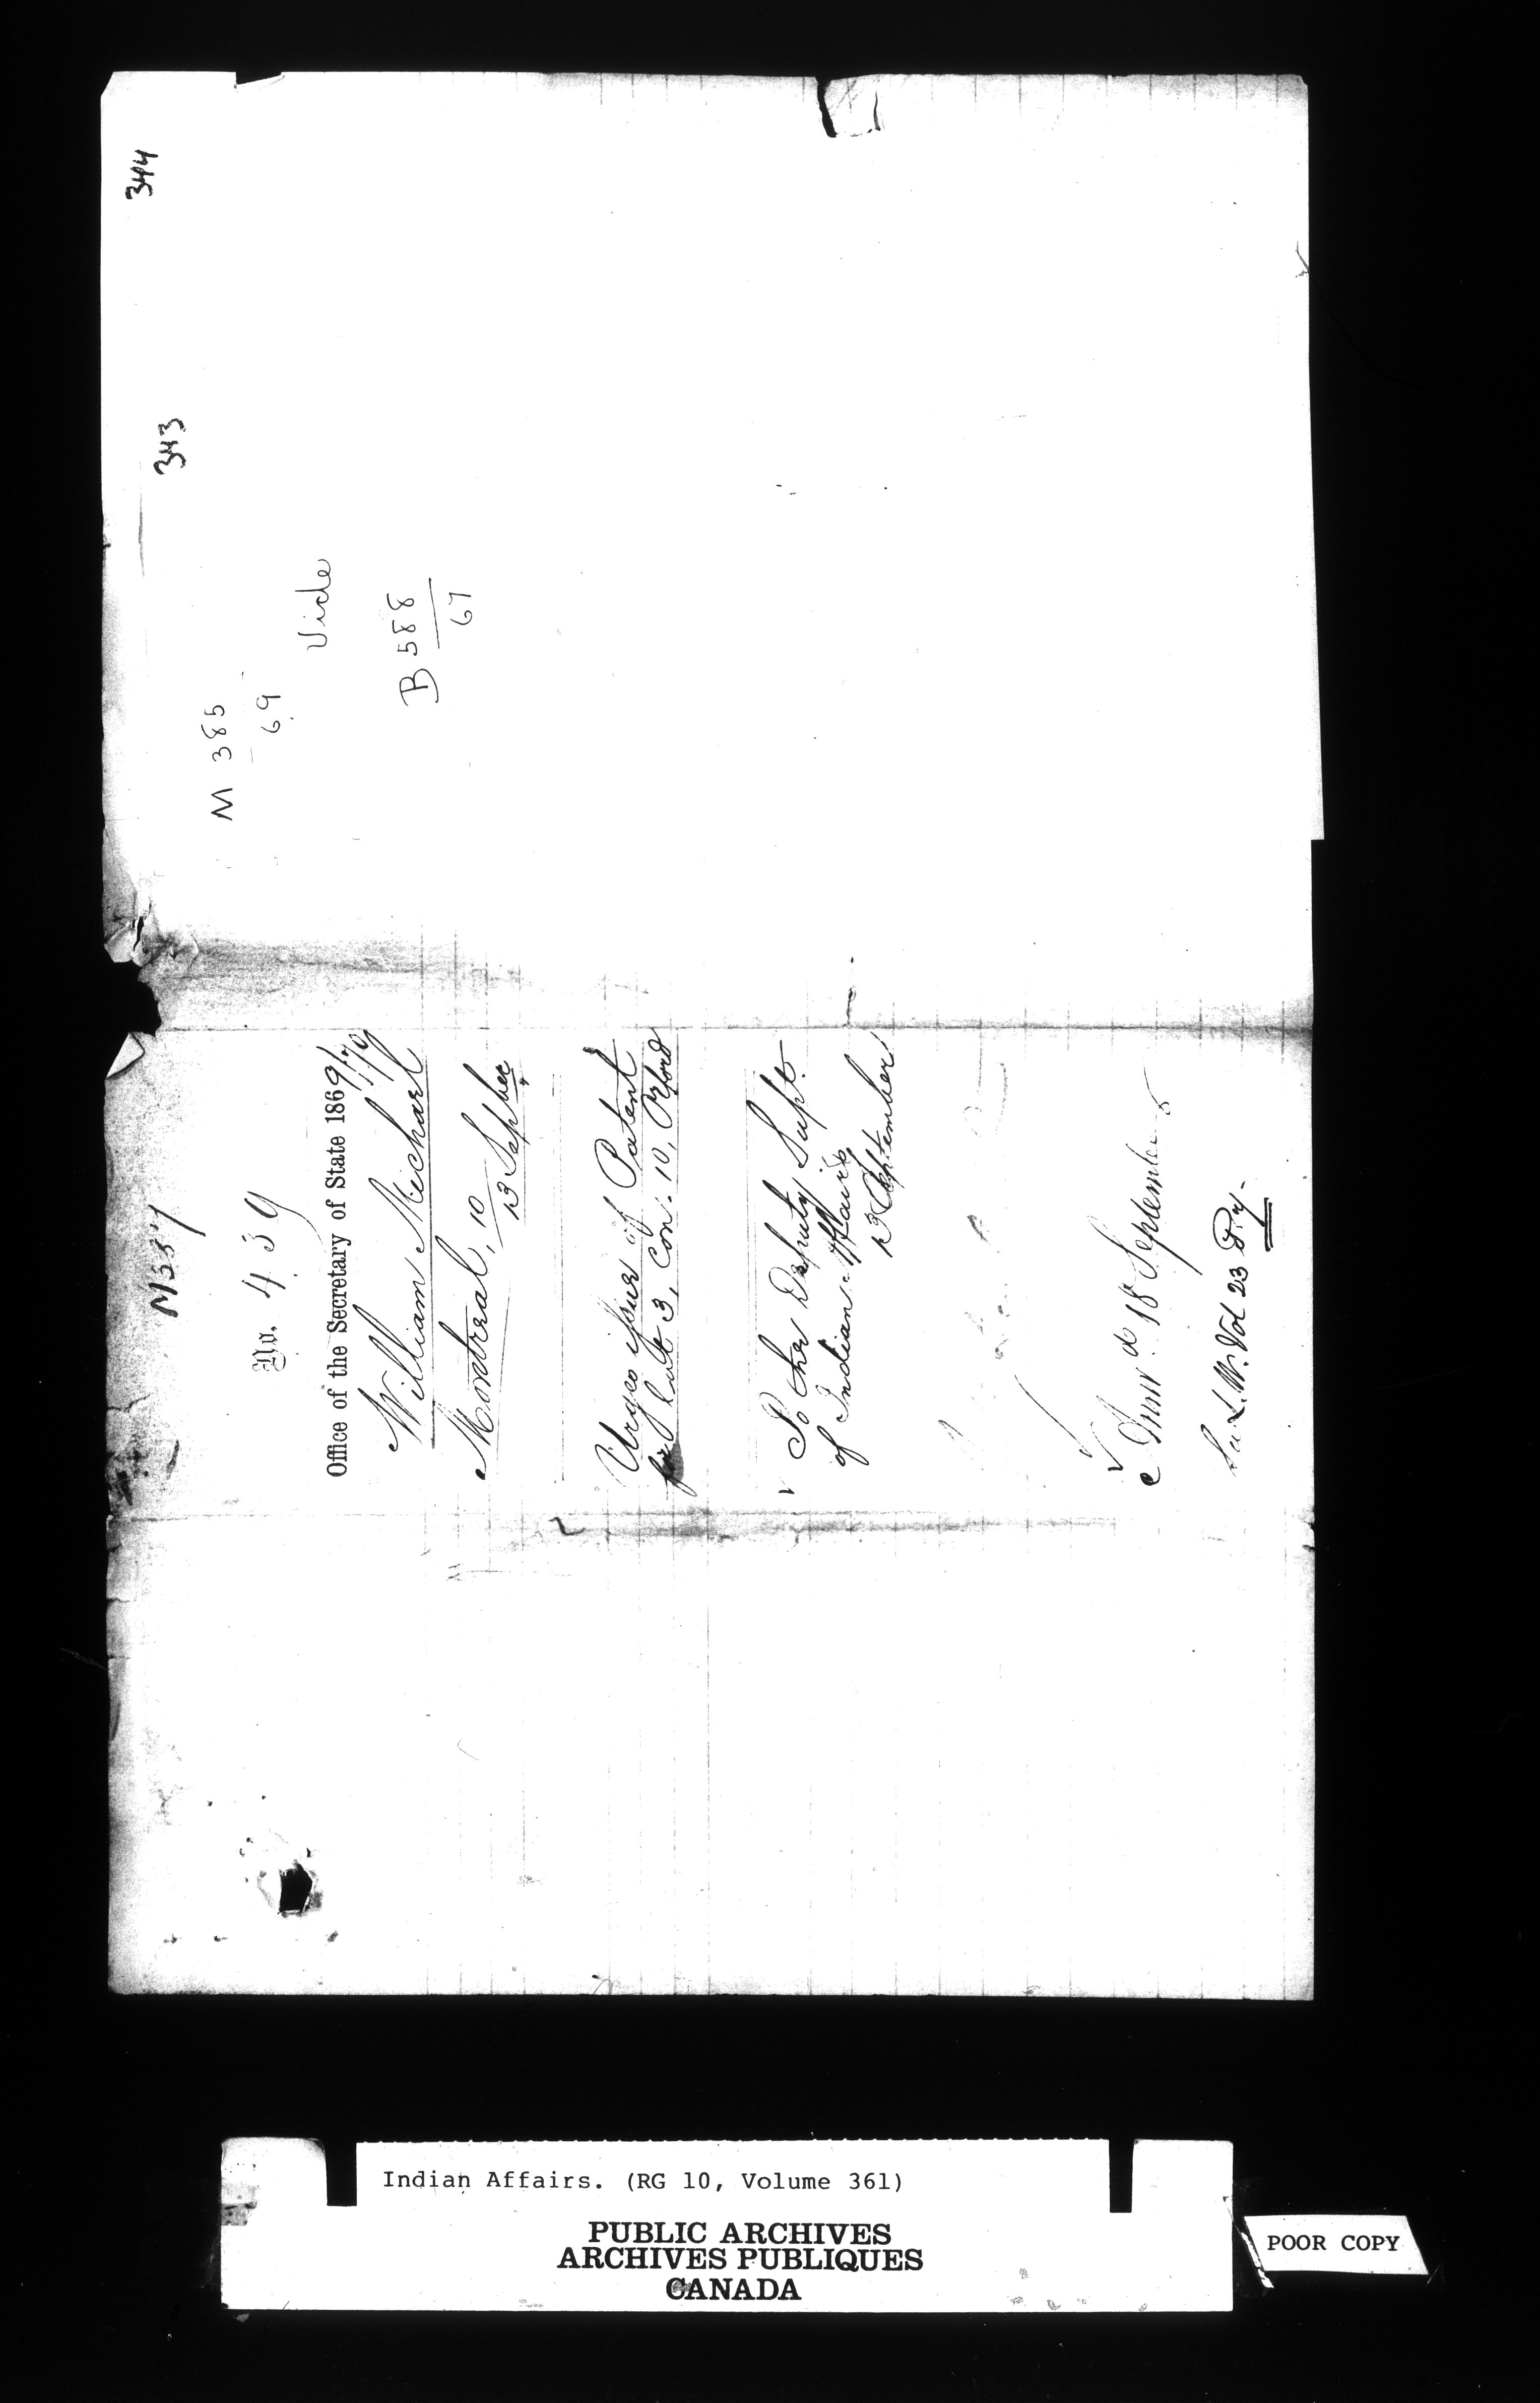 344
343
M 385
69
Vide
B 588
67
M337
No. 439
Office of the Secretary of State 1869/70
William Michael
Montreal, 10
13 Sepber
Urges issue of Patent
for lot 3, Con. 10, Orford
To the Deputy Supt.
of Indian Affairs
13 September
Answd 18 September
See L.W. Vol 23
Indian Affairs. (RG 10, Volume 361)
PUBLIC ARCHIVES
ARCHIVES PUBLIQUES
CANADA
POOR COPY